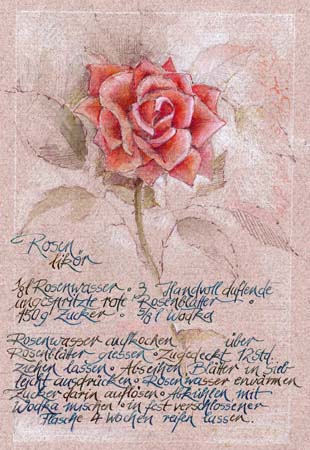 Rosen
likör
1/8 l Rosenwasser ° 3 Handvoll duftende
ungespritzte rote Rosenblätter °
150g Zucker ° 3/8 l Wodka
Rosenwasser aufkochen ° über
Rosenblätter giessen ° Zugedeckt 12Std.
Ziehen lassen ° Abseihen, Blätter in Sieb
leicht ausdrücken ° Rosenwasser erwärmen
Zucker darin auflösen ° Abkühlen mit
Wodka mischen ° in fest verschlossener
Flasche 4 Wochen reifen lassen..